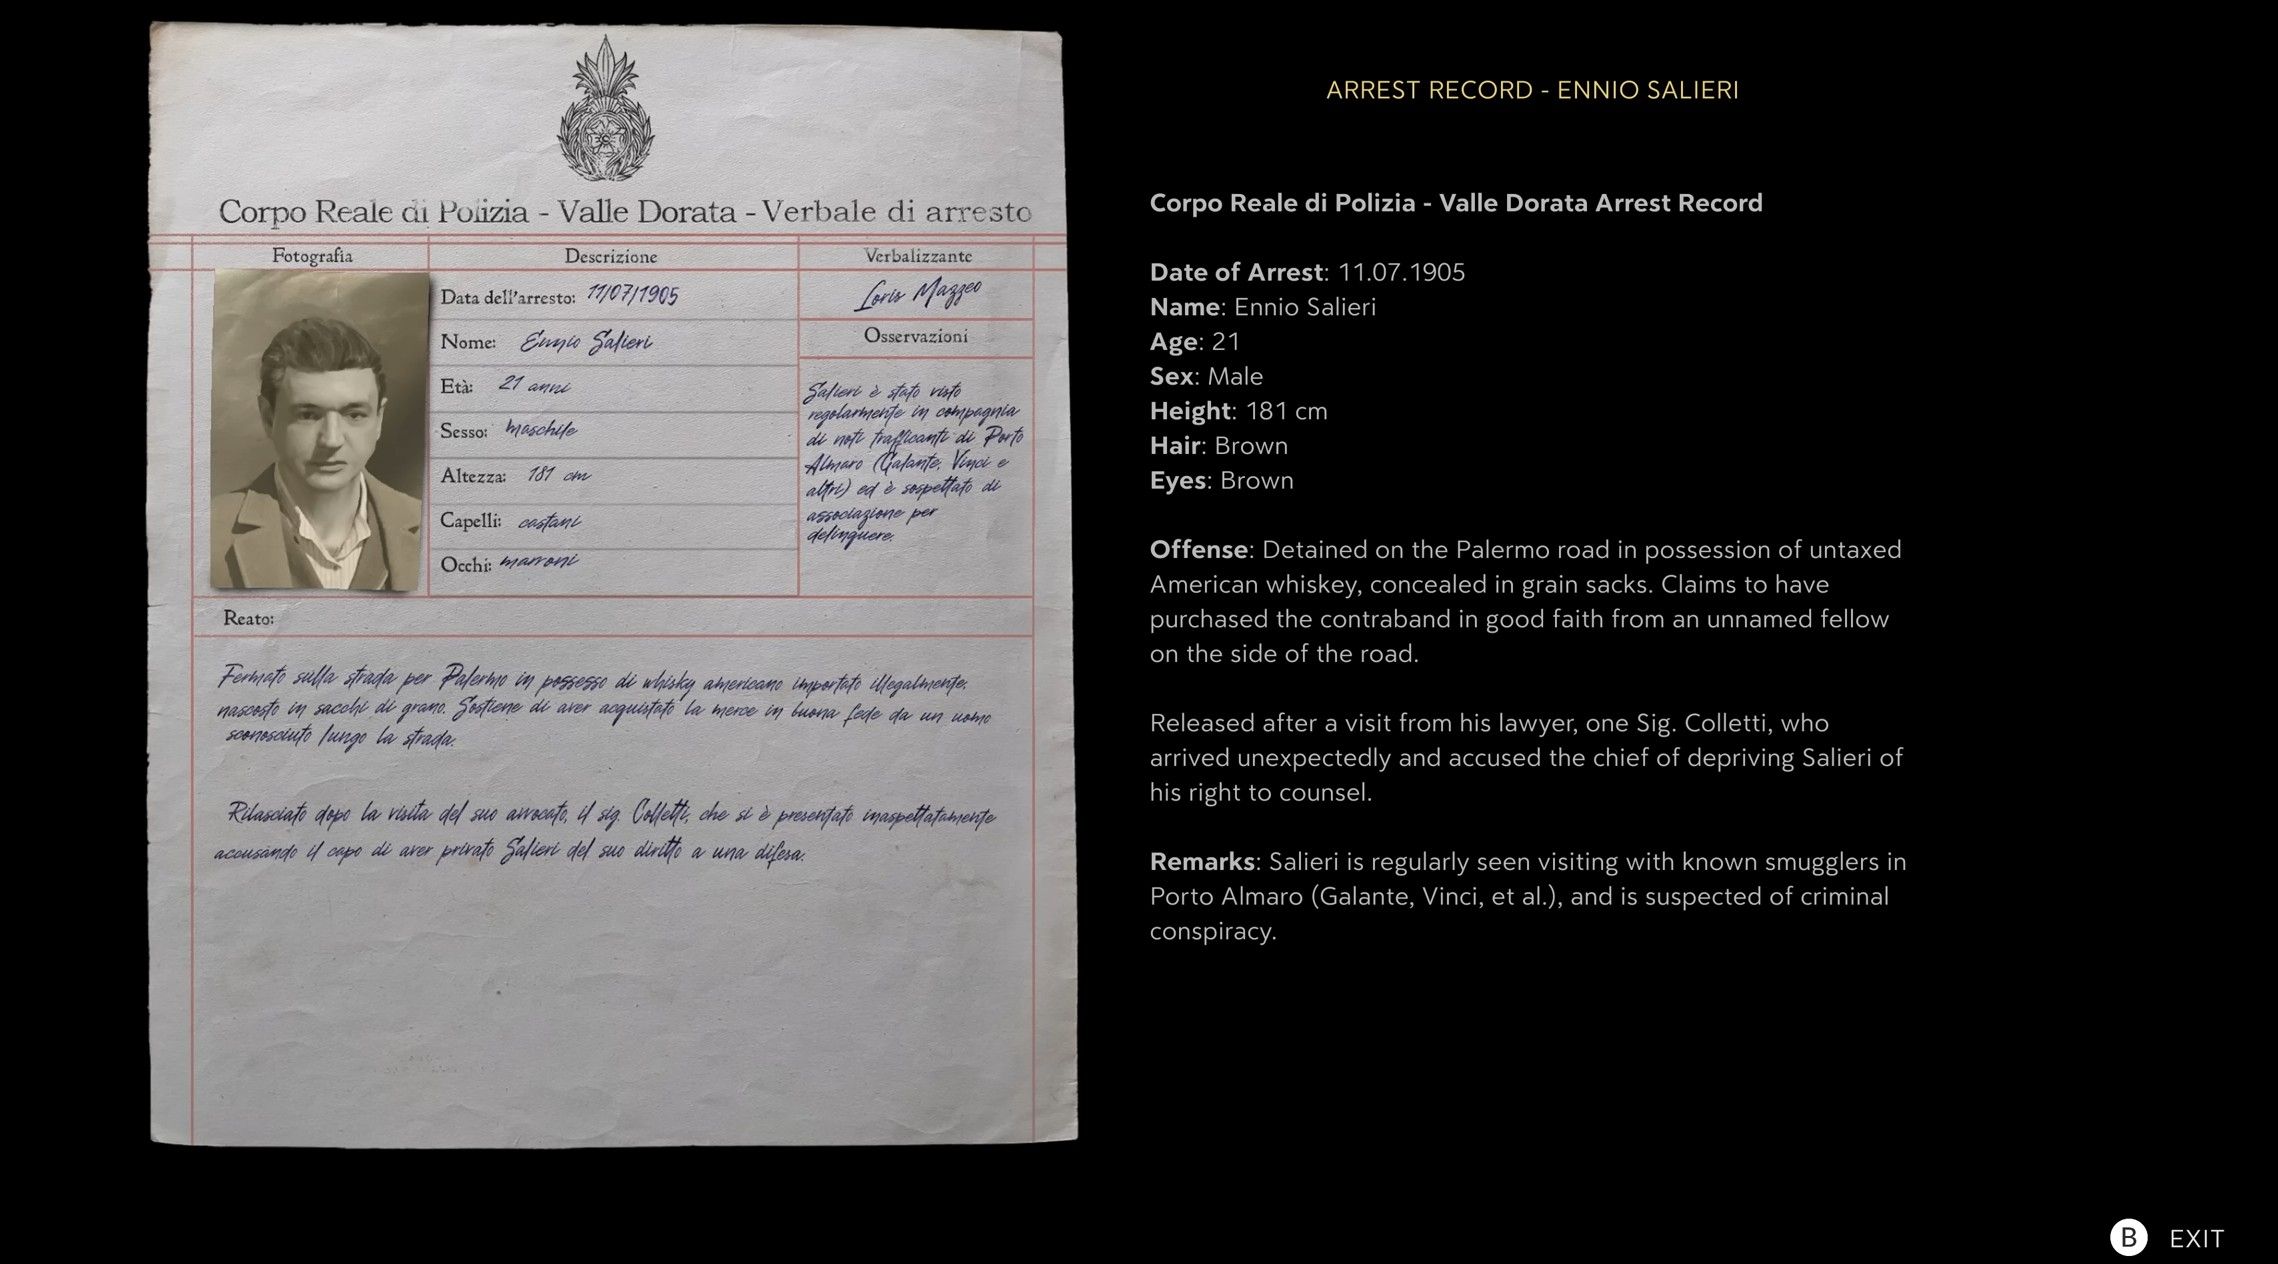 Corpo Reale di Polizia - Valle Dorata - Verbale di arresto
Fotografia
Descrizione
Verbalizzante
Data dell'arresto: 11/07/1905
Nome: Ennio Salieri
Età: 21 anni
Sesso: maschile
Altezza: 181 cm
Capelli: castani
Occhi: marroni
Loris Mazzeo
Osservazioni
Salieri è stato visto
regolarmente in compagnia
di noti trafficanti di Porto
Almaro (Galante, Vinci e
altri) ed è sospettato di
associazione per
delinquere.
Reato:
Fermato sulla strada per Palermo in possesso di whisky americano importato illegalmente,
nascosto in sacchi di grano. Sostiene di aver acquistato la merce in buona fede da un uomo
sconosciuto lungo la strada.
Rilasciato dopo la visita del suo avvocato, il sig. Colletti, che si è presentato inaspettatamente
accusando il capo di aver privato Salieri del suo diritto a una difesa.
ARREST RECORD - ENNIO SALIERI
Corpo Reale di Polizia - Valle Dorata Arrest Record
Date of Arrest: 11.07.1905
Name: Ennio Salieri
Age: 21
Sex: Male
Height: 181 cm
Hair: Brown
Eyes: Brown
Offense: Detained on the Palermo road in possession of untaxed
American whiskey, concealed in grain sacks. Claims to have
purchased the contraband in good faith from an unnamed fellow
on the side of the road.
Released after a visit from his lawyer, one Sig. Colletti, who
arrived unexpectedly and accused the chief of depriving Salieri of
his right to counsel.
Remarks: Salieri is regularly seen visiting with known smugglers in
Porto Almaro (Galante, Vinci, et al.), and is suspected of criminal
conspiracy.
B EXIT